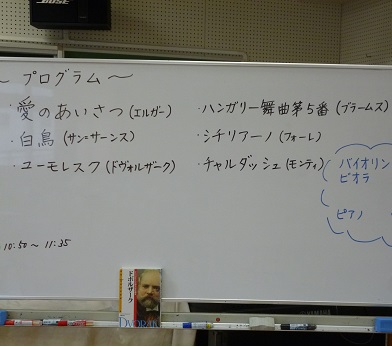 ～ プログラム ～
・愛のあいさつ(エルガー)
・白鳥(サン=サーンス)
・ユーモレスク(ドヴォルザーク)
・ハンガリー舞曲第5番(ブラームス)
・シチリアーノ(フォーレ)
・チャルダッシュ(モンティ)
バイオリン
ビオラ
ピアノ
10:50～11:35
ドボルザーク
DVOŘÁK